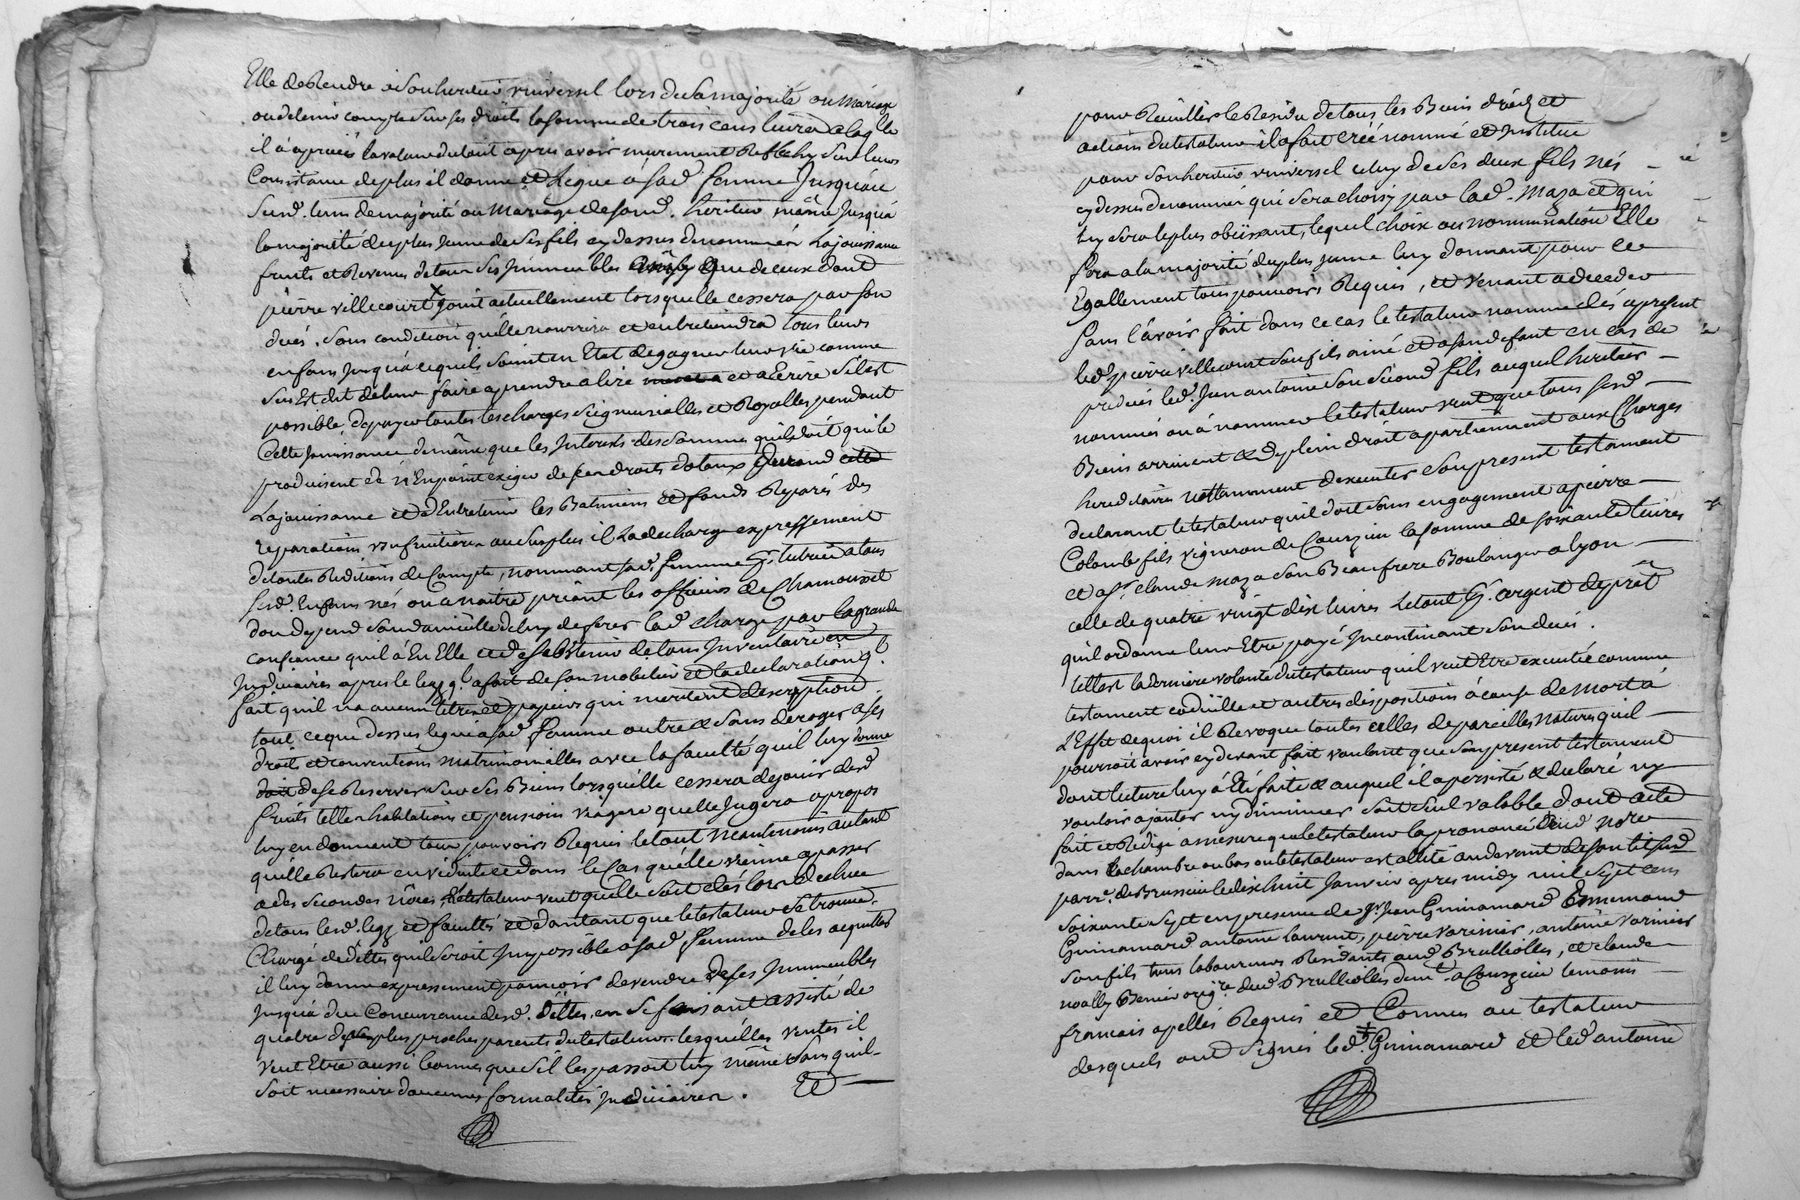 Elle de Rendre à Son heritier universel lors de sa majorité ou Mariage
ou de tenir compte sur ses droits la somme de trois cens livres a laqlle
il a aprécié la valeur du tout apres avoir murement Reflechy sur leurs
Consistance de plus il donne et Legue a sad. femme Jusqu'au
Susd. tems de majorité ou Mariage de sond. heritier même Jusqu'a
la majorité du plus Jeune de Ses fils cy dessus denommés La jouissance
fruits et Revenus de tous Ses Immeubles que de ceux dont
pierre villecourt jouit actuellement lorsquelle cessera par son
décés. Sous condition qu'elle nourrira et entretiendra tous leurs
enfans jusqu'a ce quils Soint en Etat de gagner leur vie comme
Sus Est dit de leur faire aprendre a lire et a Ecrire S'il est
possible de payer toutes les charges Seigneurialles et Royalles pendant
Cette Jouissance de même que les Interests des Sommes qu'il doit qui le
produisent et n'En point exiger de ses droits dotaux durand cette
La jouissance et d'Entretenir les Batimens et fonds Reparés des
reparations usufruitieres au Surplus il La decharge expressement
de toutes Reditions de Compte, nommant sad. femme tutrice a tous
sesd. Enfans nés ou a naitre priant les officiers de Chamousset
dou depend Son domicille de luy deferer lad. charge par la grande
confiance quil à En Elle et de s'abstenir de tous Inventaires
Judiciaires apres le legz ql a fait de son mobilier et la declaration ql.
fait qu'il n'a aucun titres et papiers qui meritent description
tout ce que dessus legué a sad. femme outre & Sans deroger a ses
droit et conventions matrimonialles avec la faculté qu'il luy donne
de se Reserver Sur Ses Biens lorsqu'elle cessera de jouir desd.
fruits telles habitations et pensions viagere quelle Jugera a propos
luy en donnant tous pouvoirs Requis le tout neantmoins autant
qu'elle Restera en viduité et dans le Cas qu'elle vienne a passer
a des Secondes Nôces, Le testateur veut qu'elle Soit dés lors dechue
de tous lesd. legz et facultés et d'autant que le testateur se trouve
Chargé de dettes qu'il Seroit Impossible a sad. femme de les acquitter
il luy donne expressement pouvoir de vendre de ses Immeubles
Jusqu'a due Concurrance desd. dettes en Se faisant assisté de
quatre des plus proches parents du testateur lesquelles ventes il
veut Etre aussi bonnes que S'il les passoit luy même Sans quil
Soit necessaire d'aucunes formalités Judiciaires. Et
pour Reuillir le Residu de tous les Biens droits et
actions du testateur il a fait créé nommé et Institue
pour son heritier universel celuy de Ses deux fils nés
cy dessus denommés qui Sera choisy par lad. Maza et qui
luy Sera le plus obëissant, lequel choix ou nomination Elle
fera a la majorité du plus jeune luy donnant pour ce
Egallement tous pouvoirs Requis, et venant a deceder
Sans l'avoir fait dans ce cas le testateur nomme dés apresent
led. pierre villecourt Son fils ainé et a son defaut en cas de
predécés led. Jean antoine Son Second fils auquel heritier
nommés ou à nommer le testateur veut que tous sesd.
Biens arrivent & de plein droit apartiennent aux Charges
hereditaires nottamment d'executer Son present testament
declarant le testateur qu'il doit Sans engagement a pierre
Colombe fils vigneron de Courzieu la somme de soixante livres
et a Sr. claude maza Son Beau frere Boulanger a lyon
celle de quatre vingt dix livres le tout argent de prêt
qu'il ordonne leur Etre payé Incontinant Son decés.
telle est la derniere volonté du testateur qu'il veut Etre executée comme
testament codicille et autres dispositions à cause de Mort a
L'Effet de quoi il Revoque toutes celles de pareilles natures quil
pourroit avoir cy devant fait voulant que Son present testament
dont lecture luy à Eté faite & auquel il a persisté & declaré ny
vouloir ajouter ny diminuer Soit Seul valable dont acte
fait et Redigé a mesure que le testateur la prononcé aud. nore
dans La chambre ou bas ou le testateur est allité au devant de son lit sud.
parre. de Brussieu le dix huit Janvier apres midy mil Sept cens
Soixante Sept en presence de Sr. Jean Guinamard Ennemond
Guinamard antoine laurent, pierre varinier, antoine varinier
Son fils tous laboureurs Residants aud. Brullioles, et claude
noally Benier origre. dud. Brullioles demt. a Courzieu temoins
francais apellés Requis et Connus au testateur
desquels ont Signés led. Guinamard et led. antoine